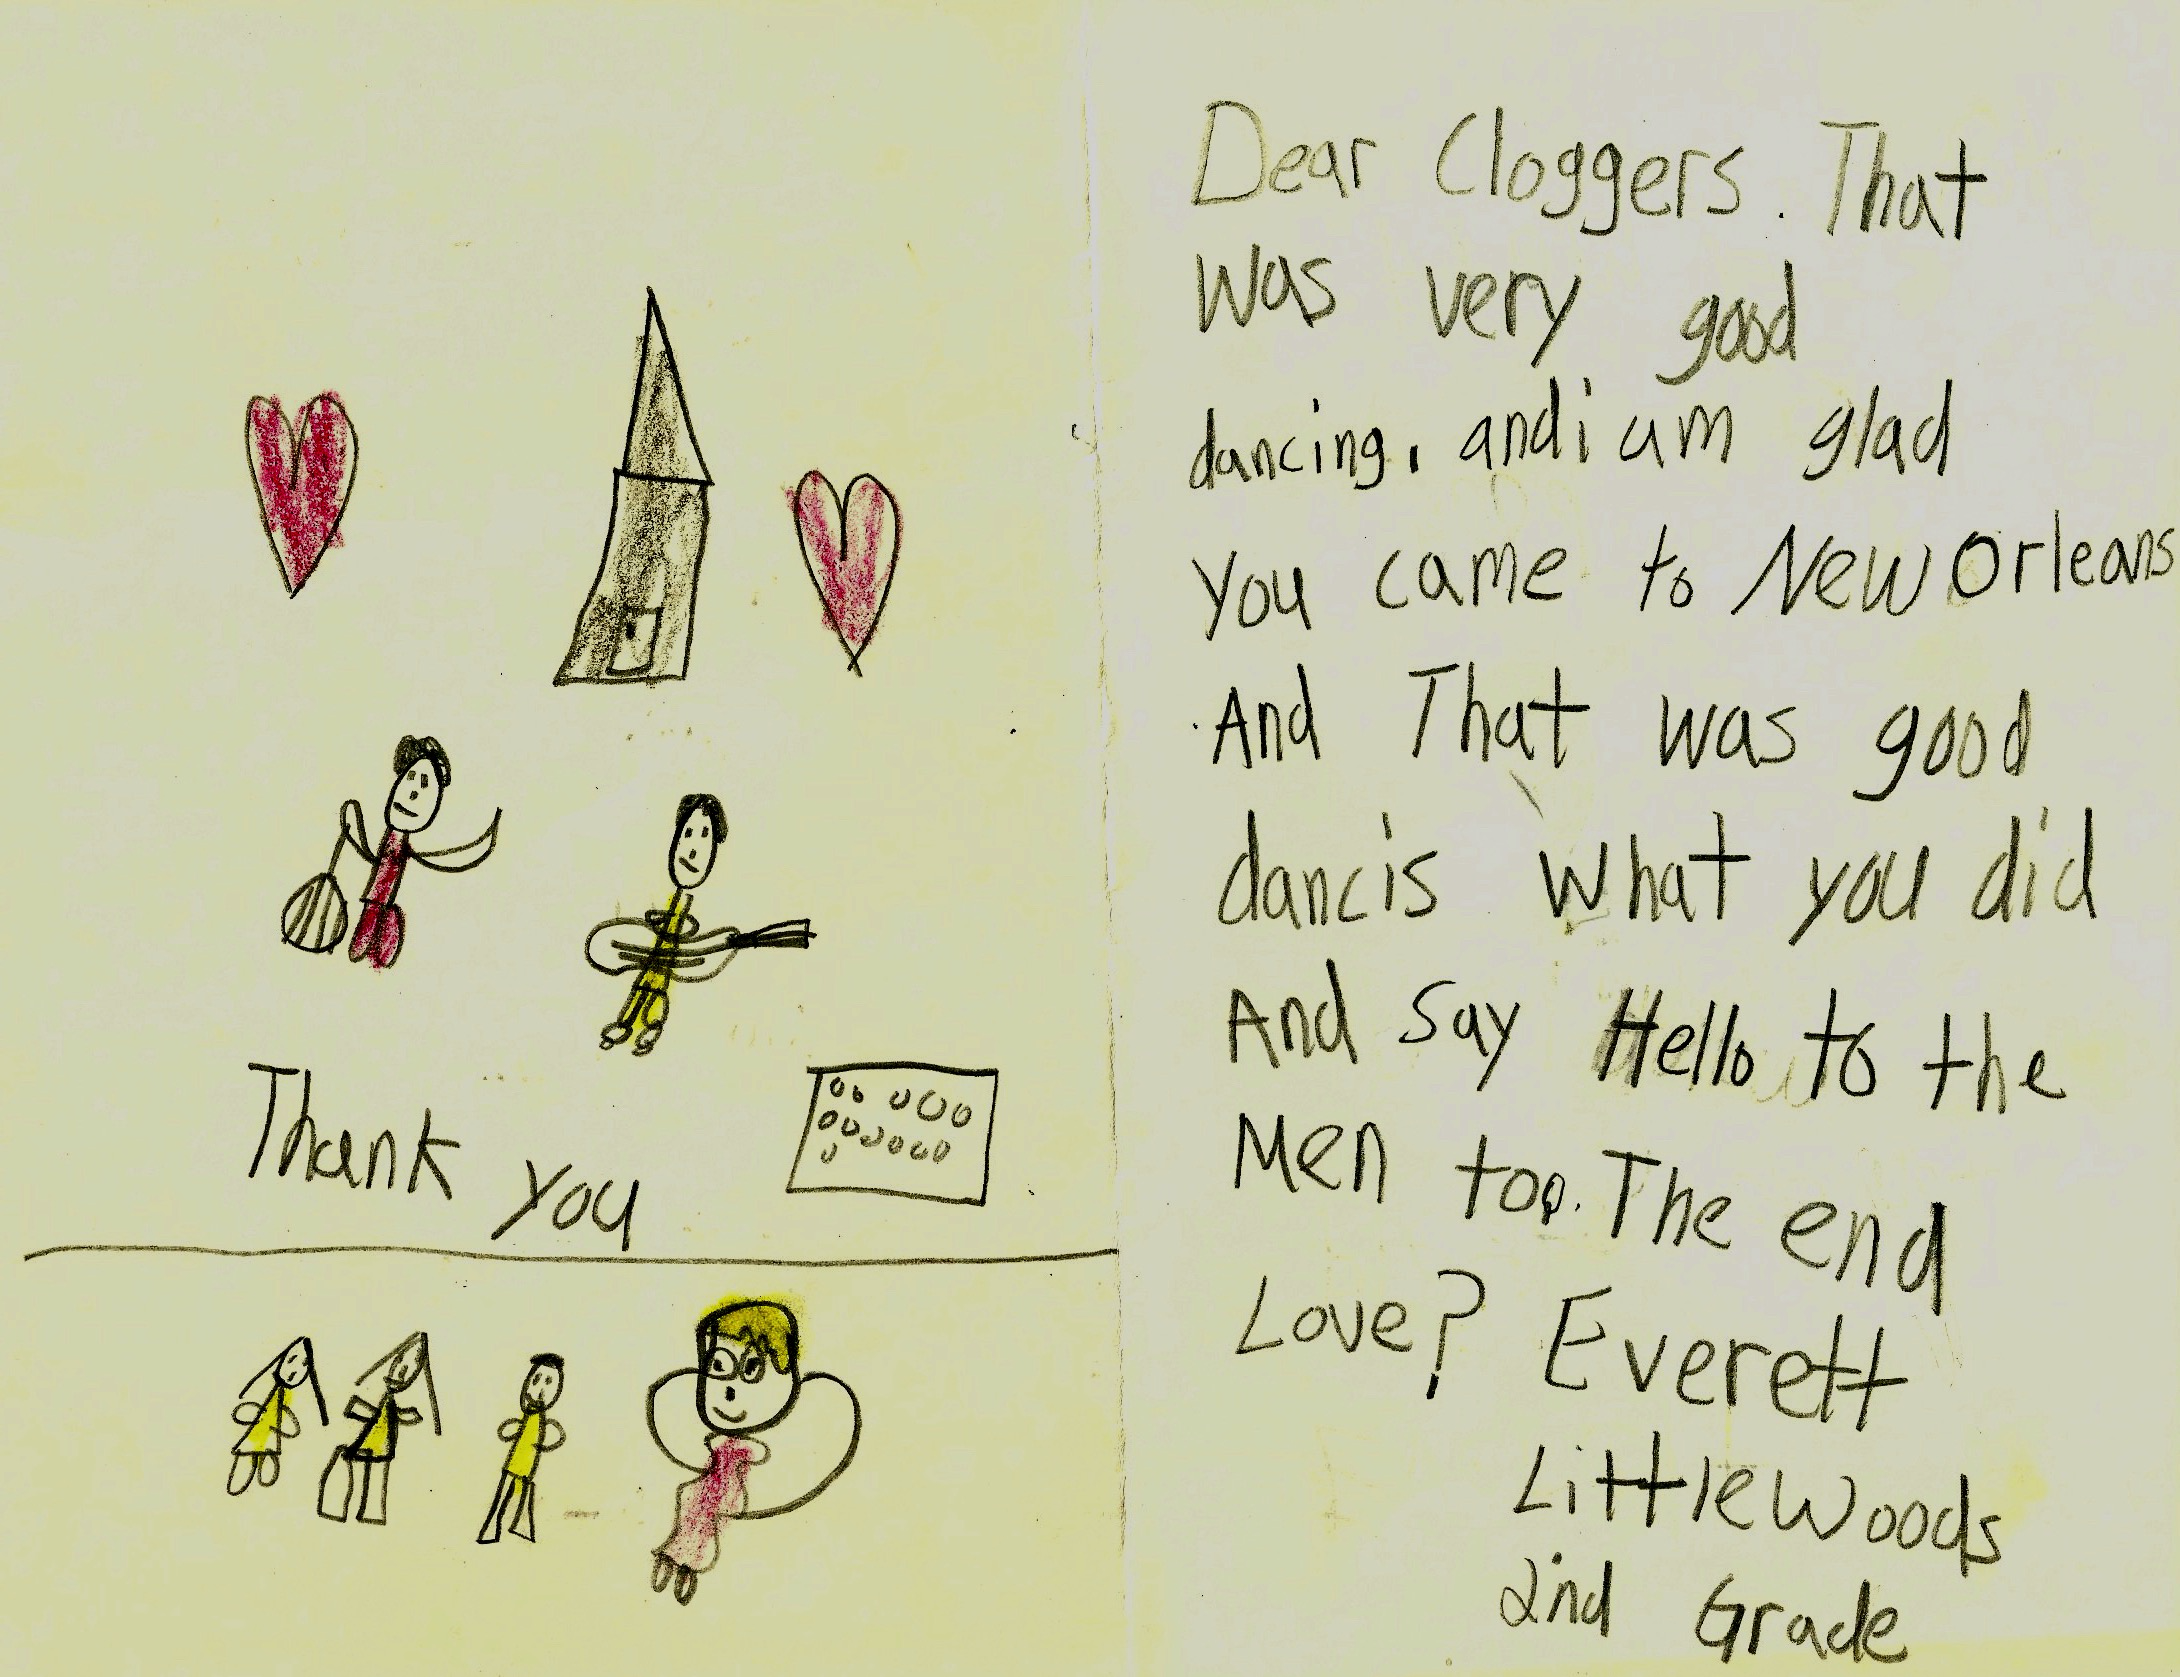 Thank you
Dear Cloggers. That
was very good
dancing, and i am glad
you came to New Orleans
And That was good
dancis what you did
And say Hello to the
Men too. The end
Love? Everett
Little Woods
2nd Grade